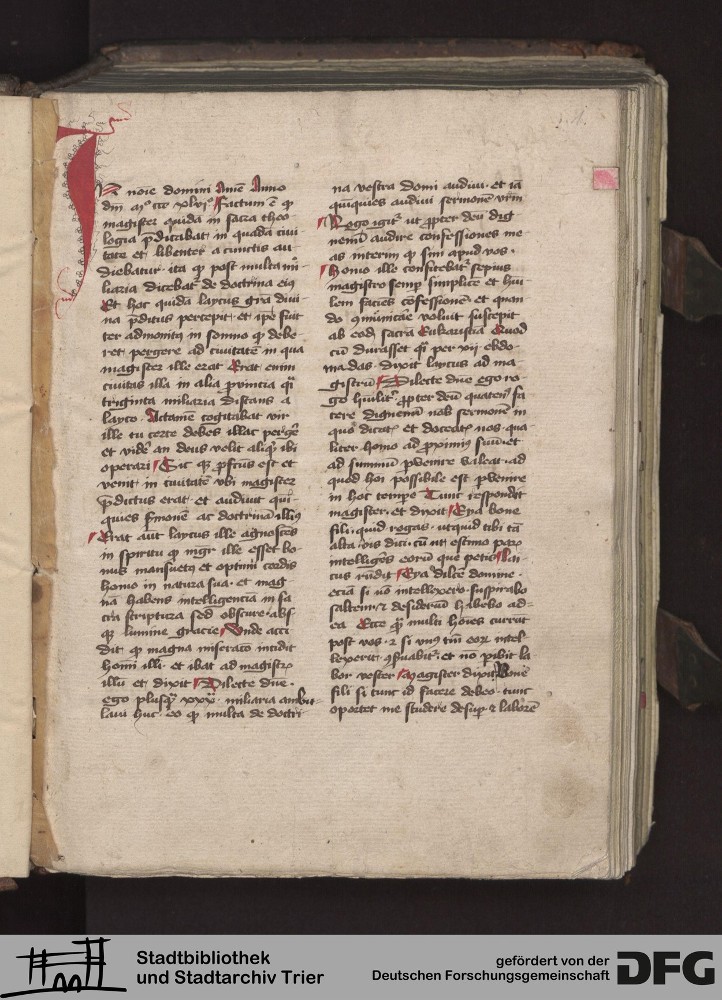 In noie domini Amē Anno
dm̄ mº ccc xlvjº Factum ē q̄
magister quida in sacra theo
logia p̄dicabat in quada ciui
tate et libenter a cunctis au
diebatur ita qꝫ post multa mi
liaria dicebat de doctrina eiꝰ
Et hoc quida laycus gr̄a diui
na p̄ditus percepit et ip̄e fuit
ter admonitꝰ in somno qꝫ debe
ret pergere ad ciuitatē in qua
magister ille erat Erat enim
ciuitas illa in alia prouintia q̄si
triginta miliaria distans a
layco Attamē cogitabat vir
ille tu certe debes illac perge
et vide an deus velit aliqꝫ ibi
operari Sic qꝫ profectus est et
venit in ciuitatē vbi magister
p̄dictus erat et audiuit qui
quies sermonē ac doctrinā illiꝰ
Erat aut laycus ille agnoscēs
in spiritu qꝫ mgr ille esset bo
nus mansuetꝰ et optimi cordis
homo in natura sua et mag
nā habens intelligencia in sa
cra scriptura sed obscure abs
qꝫ lumine gracie Vnde acci
dit qꝫ magna miseracō incidit
homi illi et ibat ad magistrꝫ
illū et dixit Dilecte dn̄e
ego plusqꝫ xxx miliaria ambu
laui huc eo qꝫ multa de doctri
na vestra domi audiui et iā
quīquies audiui sermonē vr̄m
Rogo igit ut propter deū dig
nemī audire confessiones me
as interim qꝫ sim apud vos
Homo ille confitebat sepius
magistro semp simplice et hui
lem facies cōfessionē et quan
do cōmunicare voluit suscepit
ab eodē sacra Eukaristiā Quod
cū durasset q̄si per xij ebdo
madas dixit laycus ad ma
gistrū Dilecte dn̄e ego ro
go huilit propter deū quaten fa
cere dignemī nob sermonē in
quo dicat et doceat nos qua
liter homo ad proximū suū et
ad summū p̄uenire valeat ad
quod hoī possibile est p̄uenire
in hoc tempe Tunc respondit
magister et dixit Eya bone
fili quid rogas utquid tibi tā
alta vis dici cū ut estimo parꝫ
intelliges eorū que petis Lai
cus rn̄dit Eya dilcē domine
eciā si nō intellexero suspirabo
saltem et desideriū habebo ad
ea Ecce q̄ multi hoīes currāt
post vos et si vnꝰ tm̄ eorꝫ intel
lexerit cōseruabit et no pibit la
bor vester Magister dixit Bone
fili si tunc id facere debeo tunc
oportet me studere desup et laborē
Stadtbibliothek
und Stadtarchiv Trier
gefördert von der
Deutschen Forschungsgemeinschaft
DFG